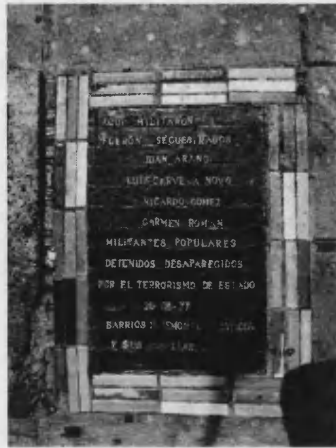 AQUI MILITARON Y
FUERON SECUESTRADOS
JUAN ARANO
LUIS CERVERA NOVO
RICARDO GOMEZ
CARMEN ROMAN
MILITANTES POPULARES
DETENIDOS DESAPARECIDOS
POR EL TERRORISMO DE ESTADO
77
BARRIOS
Y SUS